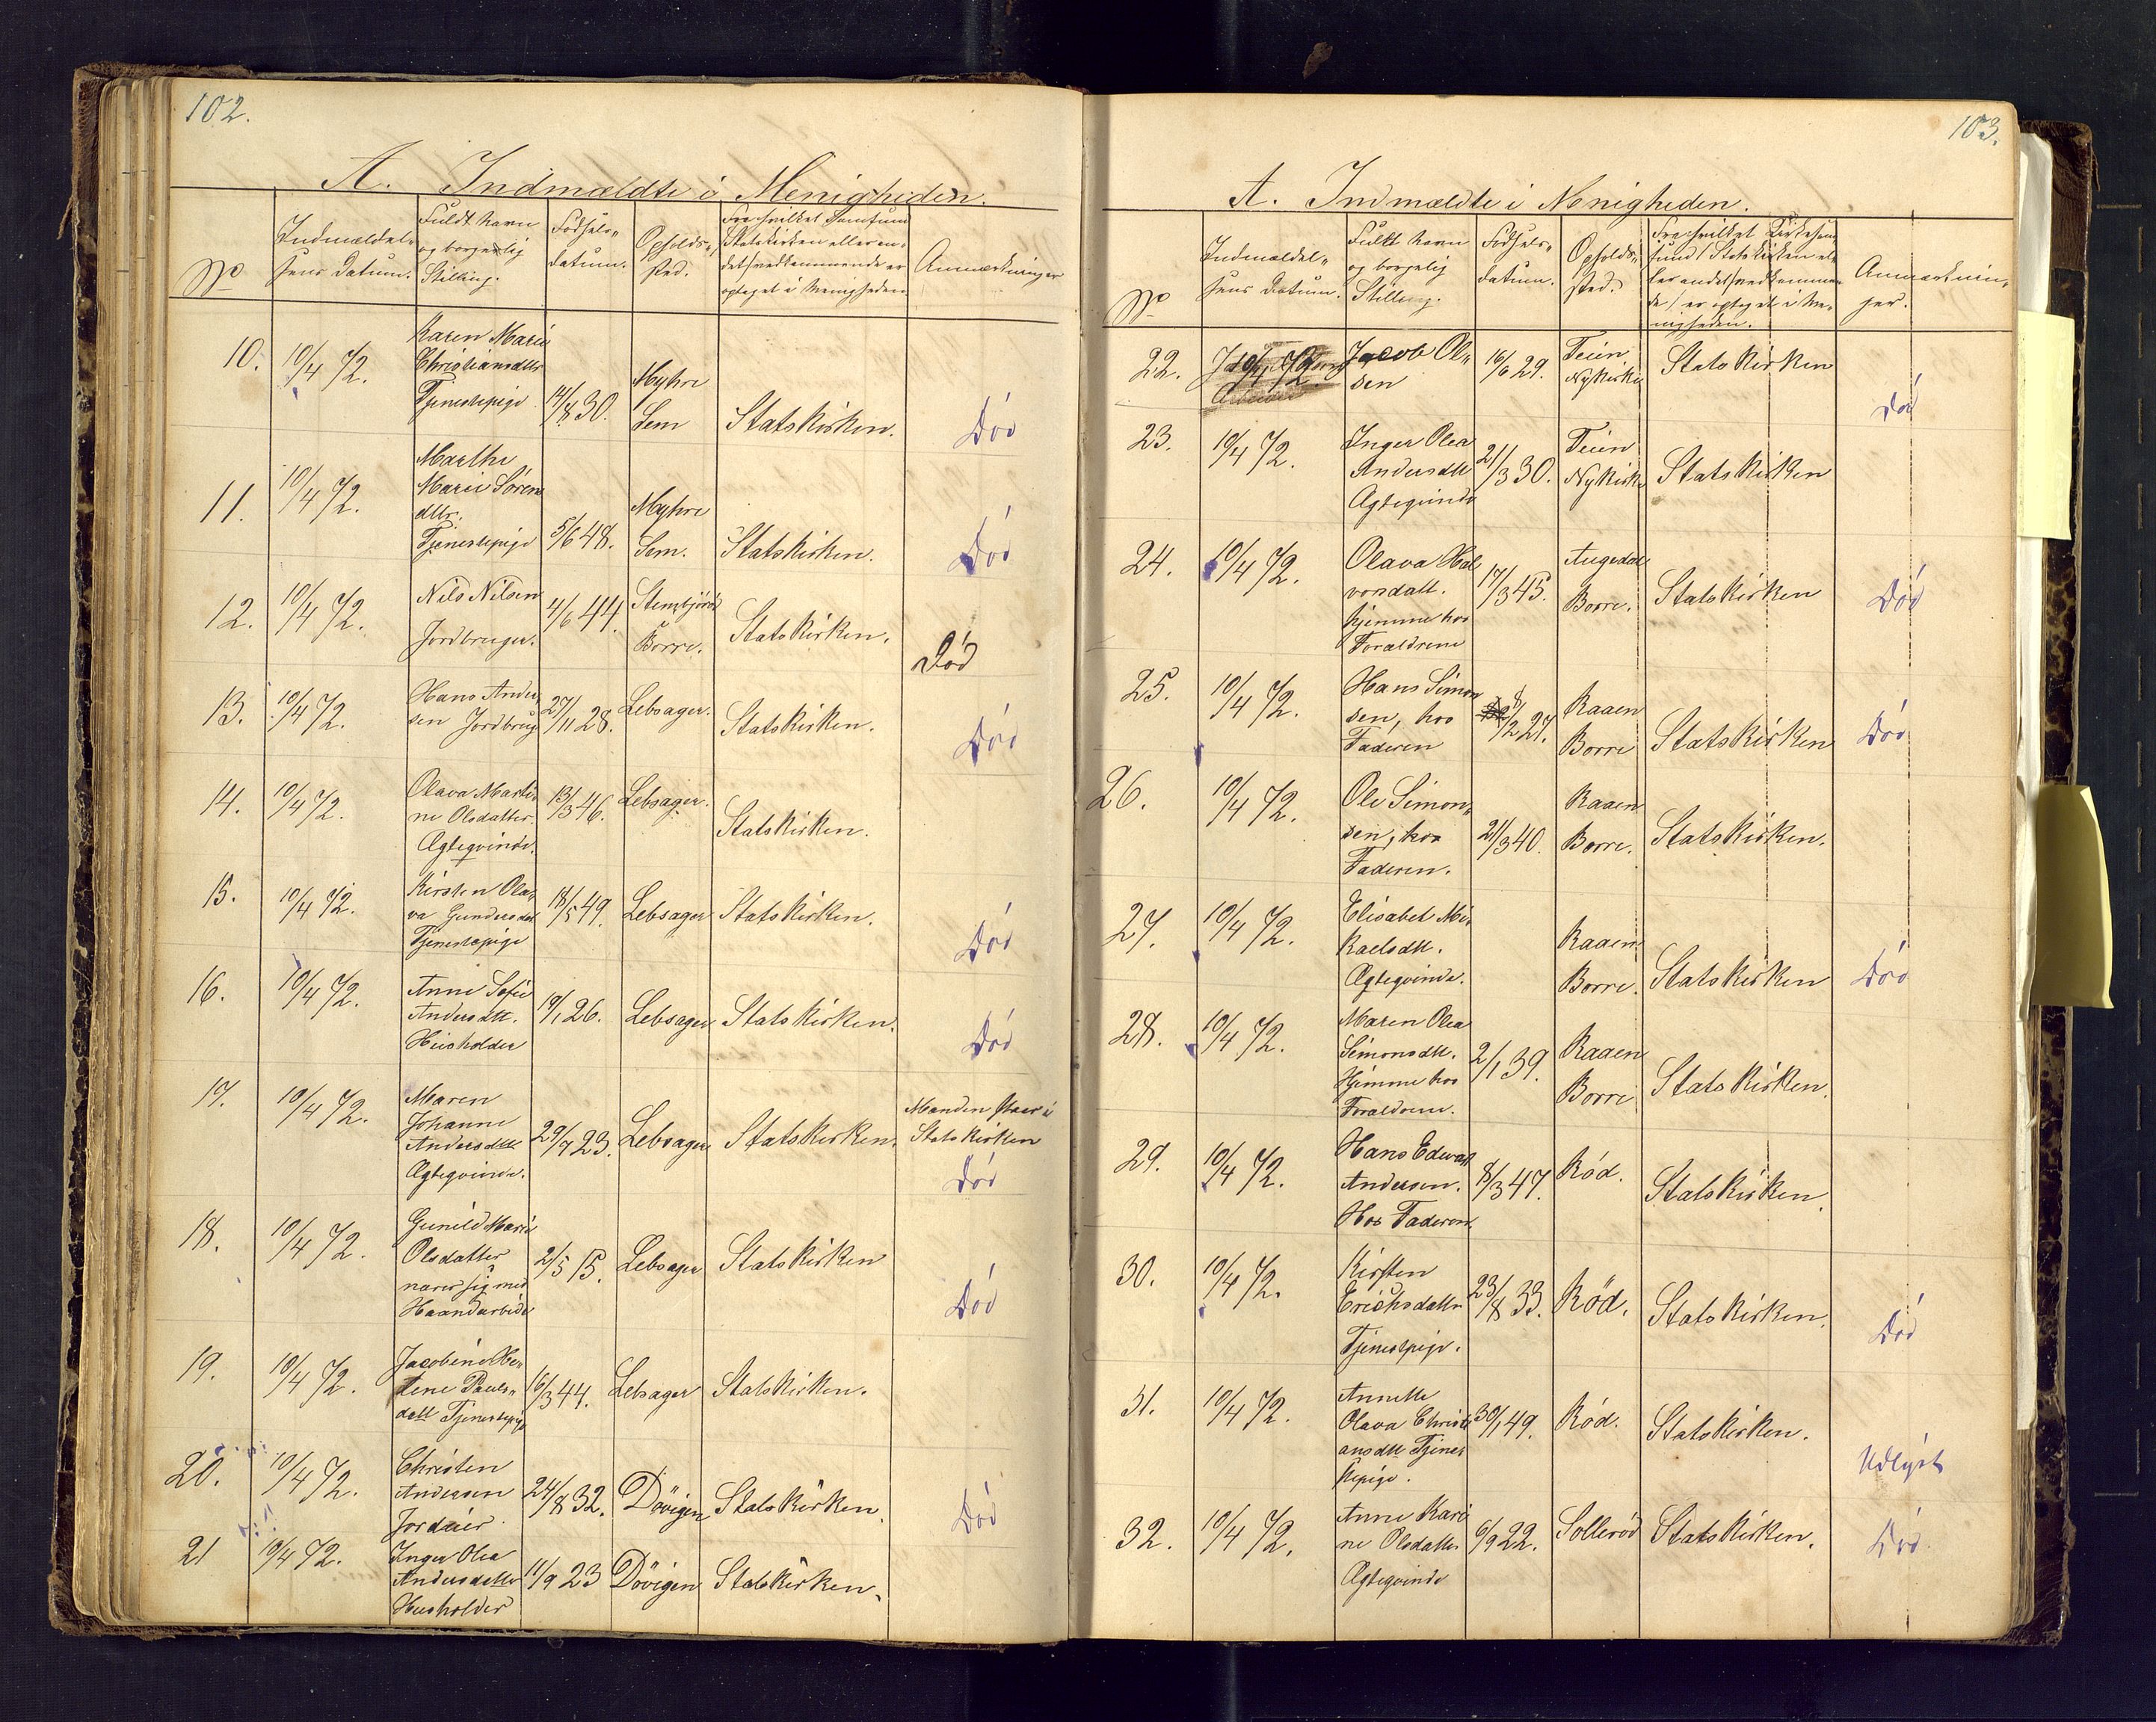 102.
A. Indmældte i Menigheden.
No
Indmældel-
sens Datum.
Fuldt Navn
og borgerlig
Stilling.
Födsels-
datum.
Opholds-
sted.
Fra hvilket Samfund
(Statskirken eller an-
det) vedkommende er
optaget i Menigheden
Anmærkninger
10. 10/4 72.
Karen Marie
Christiansdttr
Tjenestepige
14/8 30.
Myhre
Sem
Statskirken.
Död
11. 10/4 72.
Marthe
Marie Sören
dttr.
Tjenestepige
5/6 48.
Myhre
Sem.
Statskirken.
Död
12. 10/4 72.
Nils Nilsen
Jordbruger.
4/6 44.
Borre.
Statskirken.
Död
13. 10/4 72.
Hans Ander
sen Jordbrug
27/11 28.
Lebsager.
Statskirken.
Död
14. 10/4 72.
Olava Marti
ne Olsdatter.
Ægteqvinde.
13/3 46.
Lebsager.
Statskirken.
15. 10/4 72.
Kirsten Ola-
va Gundersdat
Tjenestepige
18/5 49.
Lebsager
Statskirken.
Död
16. 10/4 72.
Anne Sofie
Andersdtt.
Husholder
19/1 26.
Lebsager
Statskirken.
Död
17. 10/4 72.
Maren
Johanne
Andersdtt
Ægteqvinde.
29/7 23.
Lebsager
Statskirken.
Manden staar i
Statskirken
Död
18. 10/4 72.
Gunild Marie
Olsdatter
nærer sig med
Haandarbide
2/5 15.
Lebsager
Statskirken
Död
19. 10/4 72.
Jacobine He-
lene Pauls-
datt Tjenestepige
16/3 44.
Lebsager
Statskirken.
20. 10/4 72.
Christen
Andersen
Jordeier
24/8 32.
Dövigen
Statskirken.
Död
21 10/4 72.
Inger Olea
Andersdatter
Husholder
11/9 23
Dövigen
Statskirken.
103.
A. Indmældte i Menigheden.
No
Indmældel-
sens Datum.
Fuldt Navn
og borgelig
Stilling.
Födsels-
datum.
Opholds-
sted.
Fra hvilket Kirkesam-
fund (Statskirken el-
ler andet) vedkommen-
de er optaget i Me-
nigheden.
Anmærknin-
ger.
22. 10/4 72
Jacob Ol-
sen
16/6 29.
Teien
Nykirke
Statskirken
Död
23. 10/4 72.
Inger Olea
Andersdtt
Ægteqvinde
21/3 30.
Teien
Nykirke
Statskirken
24. 10/4 72.
Olava Hal
vorsdatt.
hjemme hos
Forældrene
17/3 45.
Augedal
Borre.
Statskirken
Död
25. 10/4 72.
Hans Simon
sen, hos
Faderen
8/2 27.
Raaen
Borre
Statskirken
Död
26. 10/4 72.
Ole Simon-
sen, hos
Faderen.
21/3 40.
Raaen
Borre.
Statskirken.
27. 10/4 72.
Elisabet Mi-
kaelsdtt.
Ægteqvinde.
Raaen
Borre.
Statskirken
Död
28. 10/4 72.
Maren Olea
Simonsdtt.
Hjemme hos
Forældrene.
2/1 39.
Raaen
Borre
Statskirken.
29. 10/4 72.
Hans Edvart
Andersen.
Hos Faderen.
8/3 47.
Röd.
Statskirken.
30. 10/4 72.
Kirsten
Erichsdattr
Tjenestpige.
23/8 33.
Röd.
Statskirken.
Död
31. 10/4 72.
Annette
Olava Christi
ansdtt Tjenes
tepige.
30/1 49.
Röd.
Statskirken.
Udlyst
32. 10/4 72.
Anne Kari
ne Olsdatter
Ægteqvinde
6/9 22.
Solleröd
Statskirken.
Död